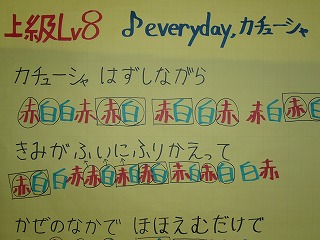 上級Lv8 ♪everyday,カチューシャ
カチューシャ はずしながら
赤白白赤 赤白 赤白白赤 赤赤白
きみがふいにふりかえって
赤白白赤赤白赤白赤赤白白赤
かぜのなかで ほほえむだけで